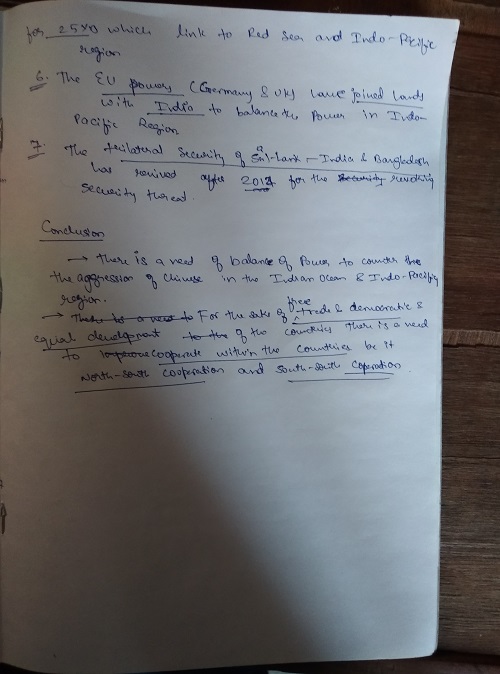 for 25%0 which link to Red Sea and Indo-Pacific
region
6. The EU powers (Germany & UK) have joined hands
with India to balance the Power in Indo-
Pacific Region
7. The trilateral security of Sri-Lank - India & Bangladesh
has revived after 2014 for the security revolving
security threat.
Conclusion
→ There is a need of balance of Power to counter the
the aggression of Chinese in the Indian Ocean & Indo-Pacific
region.
→ There is a need to For the sake of free trade & democratic &
equal development to the of the countries there is a need
to improve cooperate within the countries be it
North-South Cooperation and South-South Coperation